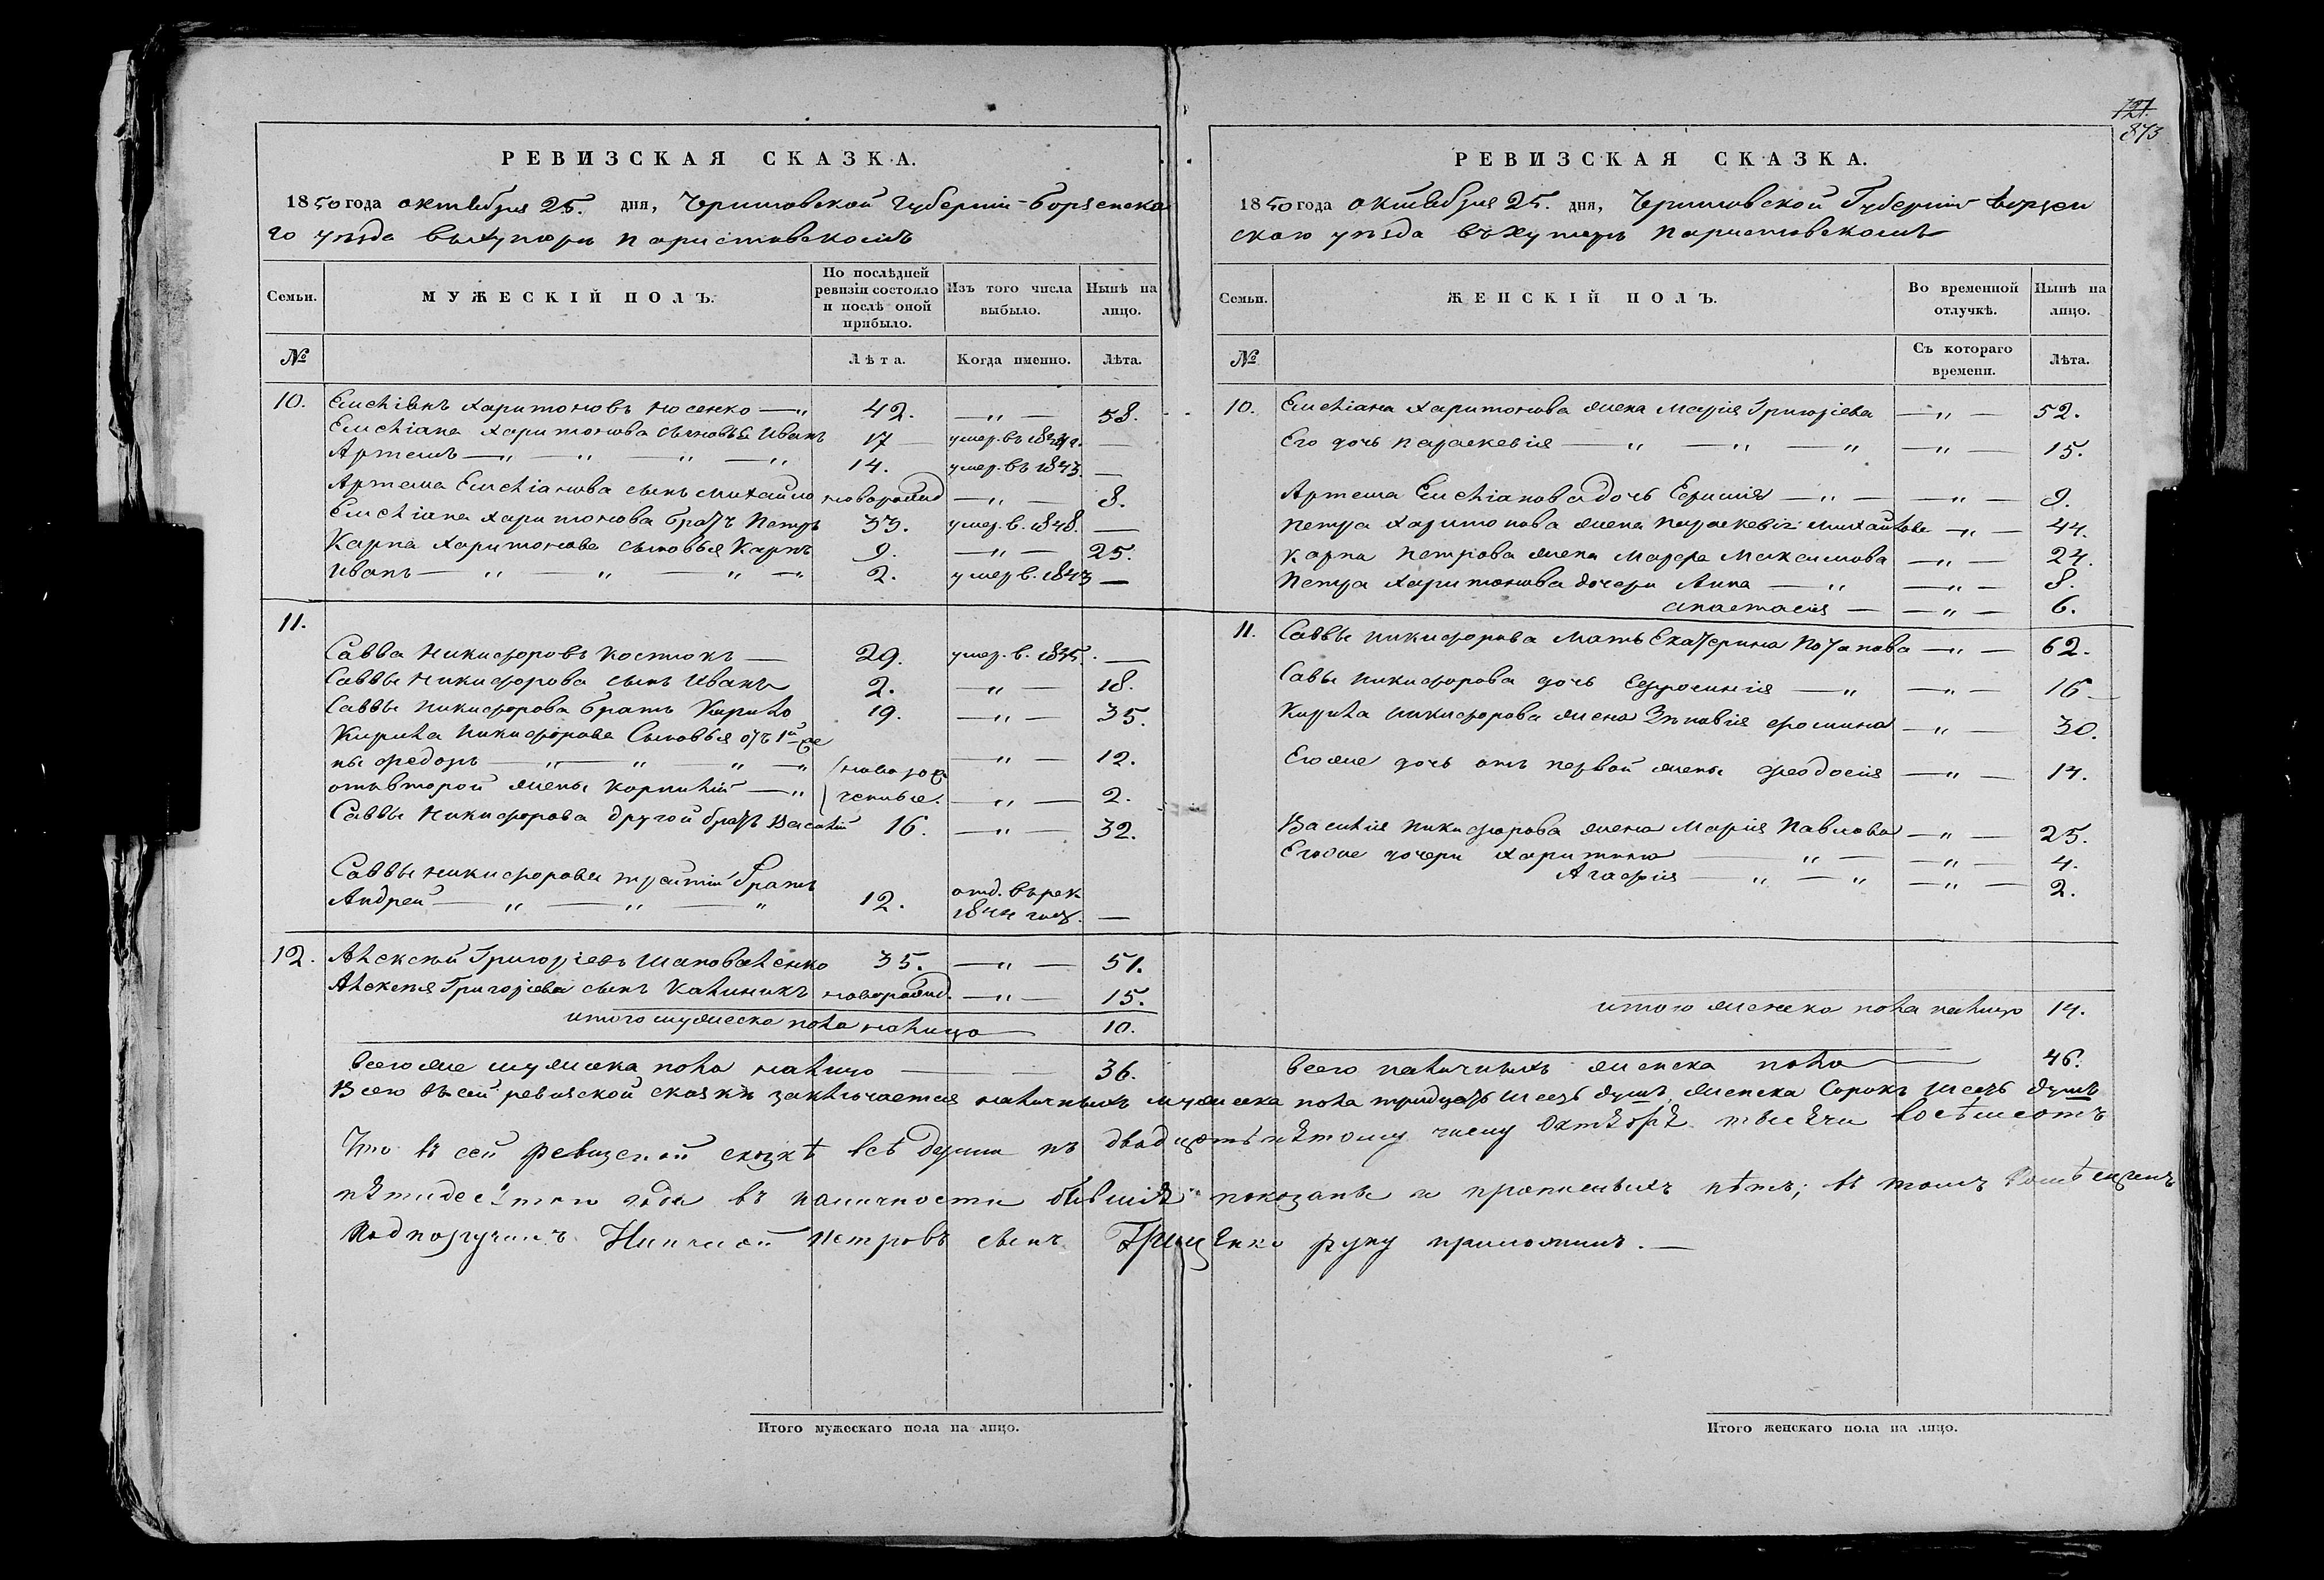 РЕВИЗСКАЯ СКАЗКА.
1850 года октября 25. дня, Черниговской губернии Борзенска
го уезда въ хуторѣ Паристовскомъ
Семьи.
МУЖЕСКІЙ ПОЛЪ.
По послѣдней ревизіи состояло и послѣ оной прибыло.
Изъ того числа выбыло.
Нынѣ на лицо.
№
Лѣта.
Когда именно.
Лѣта.
10. Емеліанъ Харитоновъ Носенко —„ 42. —„— 58.
Емеліана Харитонова сыновья Иванъ 17 — умер. въ —
Артемъ —„—„—„—„ 14. умер. въ 1843. —
Артема Емеліанова сынъ Михайло новорожд —„— 8.
Емеліана Харитонова братъ Петръ 33. умер. в. 1848. —
Карпа Харитонова сыновья Карпъ 9. —„— 25.
Иванъ —„—„—„—„ 2. умер в. 1843 —
11.
Савва Никифоровъ Костюкъ — 29. умер. в. 1835. —
Саввы Никифорова сынъ Иванъ 2. —„— 18.
Саввы Никифорова братъ Кирило 19. —„— 35.
Кирила Никифорова Сыновья отъ 1й же
ны Федоръ —„—„—„—„ новорож —„— 12.
отъ второй жены Корнилій —„ денные. —„— 2.
Саввы Никифорова другой братъ Василій 16. —„— 32.
Саввы Никифорова третій братъ
Андрей —„—„—„ 12. отд. въ рек 1844 году. —
12. Алексѣй Григоріевъ Шаповаленко 35. —„— 51.
Алексѣя Григоріева сынъ Калиникъ новорожд. —„— 15.
итого мужеска пола налицо — 10.
Всего же мужеска пола налицо — 36.
727.
873
РЕВИЗСКАЯ СКАЗКА.
1850 года октября 25. дня, Черниговской Губерніи Борзен
скаго уезда въ хуторѣ Паристовскомъ
Семьи.
ЖЕНСКІЙ ПОЛЪ.
Во временной отлучкѣ.
Нынѣ на лицо.
№
Съ котораго времени.
Лѣта.
10. Емеліана Харитонова жена Марія Григоріева —„— 52.
Его дочь Параскевія —„—„—„ —„— 15.
Артема Емеліанова дочь Ефимія —„— —„— 9.
Петра Харитонова жена Параскевія Михайлова —„— 44.
Карпа Петрова жена Марфа Максимова —„— 24.
Петра Харитонова дочери Анна —„ —„— 8.
Анастасія — —„— 6.
11. Саввы Никифорова мать Екатерина Потапова —„— 62.
Саввы Никифорова дочь Ефросинія —„ —„— 16
Кирила Никифорова жена Зѣновія Фомина —„— 30.
Его же дочь отъ первой жены Феодосія —„— 14.
Василія Никифорова жена Марія Павлова —„— 25.
Его же дочери Харитина —„— —„— 4.
Агафія —„—„ —„— 2.
итого женска пола налицо 14.
Всего наличныхъ женска пола — 46.
Всего въ сей ревизской сказкѣ заключается наличныхъ мужеска пола тридцать шесть душъ, женска Сорокъ шесть душъ
Что въ сей ревизской сказкѣ всѣ души къ двадцать пятому числу Октября тысяча восѣмсотъ
пятидесятого года въ наличности бывшія показаны и пропсеныхъ нѣтъ; въ томъ Помѣщикъ
Подпоручикъ Николай Петровъ сынъ Грищенко руку приложилъ. —
Итого мужескаго пола на лицо.
Итого женскаго пола на лицо.